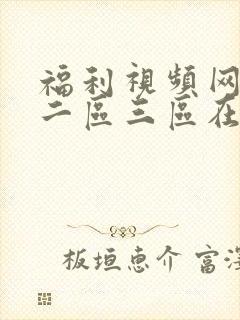 福利視頻网
二區三區在
板垣恵介 富